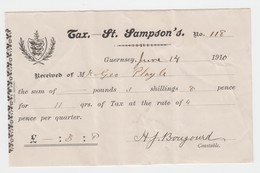 Tax.—St. Sampson's. No. 118
Guernsey, June 14 1910
Received of Mr Geo
the sum of pounds shillings 8 pence
for 11 qrs. of Tax at the rate of
pence per quarter.
£ — : : 8
H. J. Bougourd
Constable.